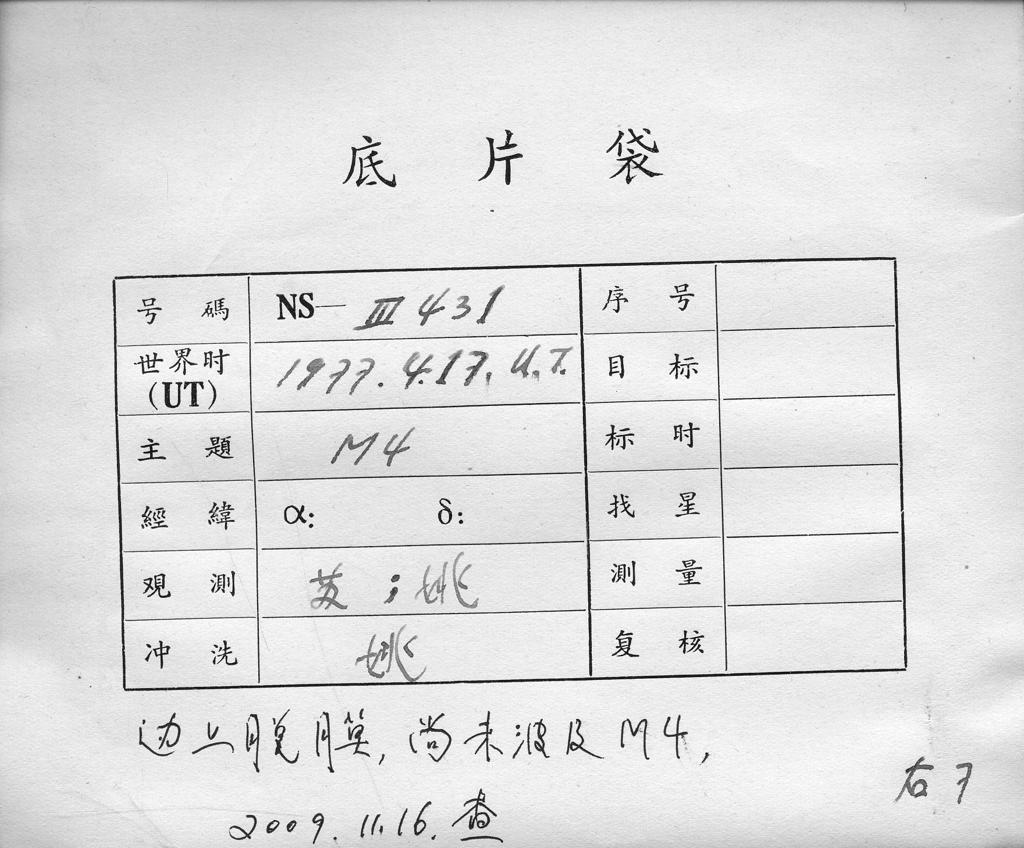 底片袋
号碼 NS— III 431 序号
世界时(UT) 1977.4.17. U.T. 目标
主題 M4 标时
經緯 α: δ: 找星
观測 ; 姚 測量
冲洗 姚 复核
边上脱膜, 尚未波及 M4,
右
2009. 11. 16. 查